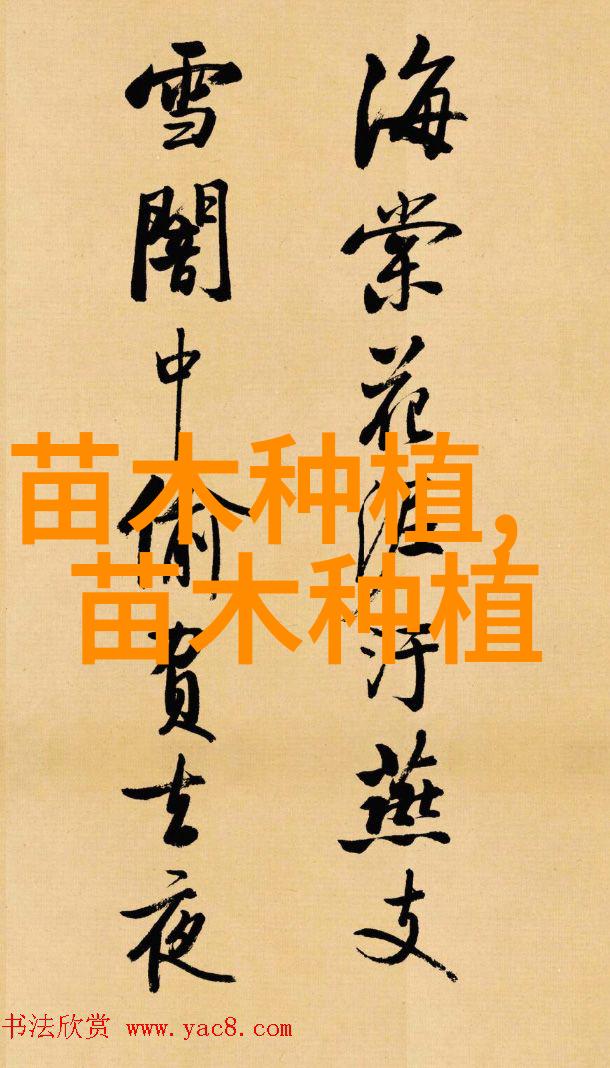 海棠花泥汙燕支
雪闇中偷負去夜
苗木种植,
苗木种植
书法欣赏 www.yac8.com